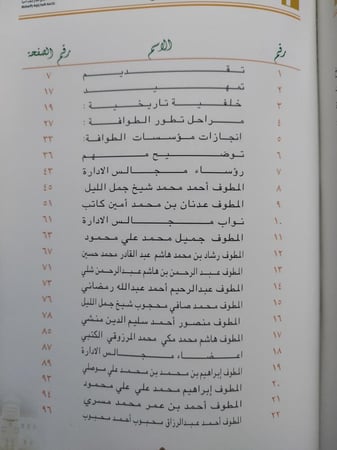 رقم الاسم رقم الصفحة
١ تقديم ٧
٢ تمهيد ١٧
٣ خلفية تاريخية: ١٩
٤ مراحل تطور الطوافة: ٢٧
٥ انجازات مؤسسات الطوافة: ٣٣
٦ توضيح مهم ٣٦
٧ رؤساء مجالس الادارة ٤٣
٨ المطوف أحمد محمد شيخ جمل الليل ٤٥
٩ المطوف عدنان بن محمد أمين كاتب ٥١
١٠ نواب مجالس الادارة ٦١
١١ المطوف جميل محمد علي محمود ٦٣
١٢ المطوف رشاد بن محمد هاشم عبد القادر محمد حسين ٦٧
١٣ المطوف عبد الرحمن بن هاشم عبدالرحمن شلي ٧١
١٤ المطوف عبدالرحيم أحمد عبدالله رمضاني ٧٣
١٥ المطوف محمد صافي محجوب شيخ جمل الليل ٧٦
١٦ المطوف منصور أحمد سليم الدين منشي ٧٨
١٧ المطوف هاشم محمد مكي محمد المرزوقي الكتبي ٨٥
١٨ اعضاء مجالس الادارة ٨٧
١٩ المطوف إبراهيم بن محمد بن محمد علي موصلي ٨٩
٢٠ المطوف إبراهيم محمد علي علي محمود ٩٣
٢١ المطوف أحمد بن عمر محمد مسري ٩٤
٢٢ المطوف أحمد عبدالرزاق محبوب أحمد محبوب ٩٦